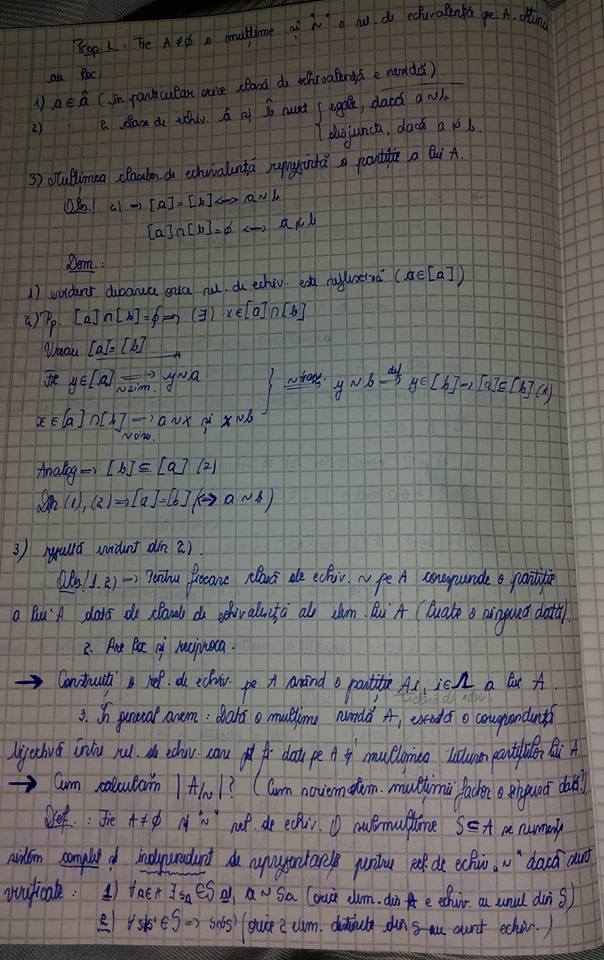 Prop. 1.: Fie A≠∅ o mulțime și "~" o rel. de echivalență pe A. Atunci
au loc:
1) a∈â (în particular orice clasă de echivalență e nevidă)
2) 2 clase de echiv. â și b̂ sunt { egale, dacă a~b
disjuncte, dacă a≁b.
3) Mulțimea claselor de echivalență reprezintă o partiție a lui A.
Obs.! 2) → [a]=[b] ⟷ a~b
[a]∩[b]=∅ ⟷ a≁b
Dem.:
1) evident deoarece orice rel. de echiv. este reflexivă (a∈[a])
2) Pp. [a]∩[b]=∅ ⟹ (∃) x∈[a]∩[b]
Vreau [a]=[b]
Fie y∈[a] ⟹ ~sim. y~a
x∈[a]∩[b] → ~sim. a~x și x~b } ~tranz. ⟹ y~b def⟹ y∈[b] → [a]⊆[b] (1)
Analog ⟹ [b]⊆[a] (2)
Din (1), (2) ⟹ [a]=[b] (⟺ a~b)
3) rezultă evident din 2).
Obs.! 1. 2) → Pentru fiecare clasă de echiv. ~ pe A corespunde o partiție
a lui A dată de clasele de echivalență ale elem. lui A (luate o singură dată).
2. Are loc și reciproca.
→ Construiți o rel. de echiv. pe A având o partiție Ai, i∈Λ a lui A.
3. În general avem: Dată o mulțime nevidă A, există o corespondență
bijectivă între rel. de echiv. care pot fi date pe A și mulțimea tuturor partițiilor lui A.
→ Cum calculăm |A/~|? (Cum scriem elem. mulțimii factor o singură dată?)
Def.: Fie A≠∅ și "~" rel. de echiv. O submulțime S⊆A se numește
sistem complet și independent de reprezentanți pentru rel. de echiv. "~" dacă sunt
verificate: 1) ∀a∈A ∃ sa∈S aî, a~sa (orice elem. din A e echiv. cu unul din S)
2) ∀s,s'∈S ⟹ s≁s' (orice 2 elem. distincte din S nu sunt echiv.)